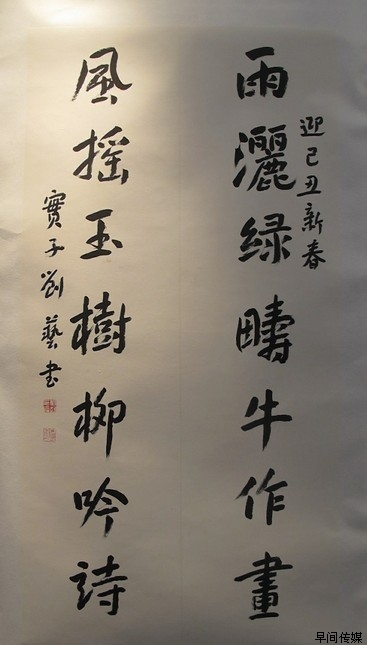 迎己丑新春
雨灑绿疇牛作畫
風摇玉樹柳吟詩
寳子劉藝书
早间传媒